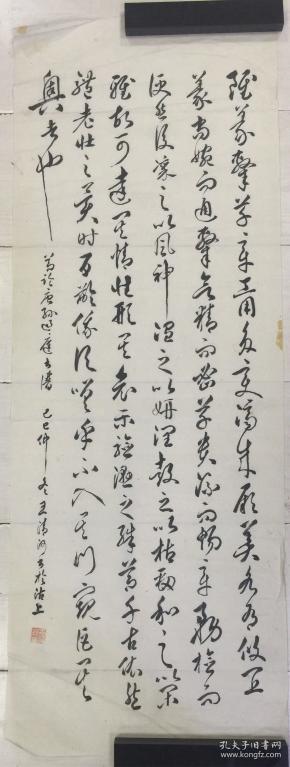 雖篆隸草章工用多變濟成厥美各有攸宜
篆尚婉而通隸欲精而密草貴流而暢章務檢而
便然後凜之以風神溫之以妍潤鼓之以枯勁和之以閑
雅故可達其情性形其哀樂驗燥濕之殊節千古依然
體老壯之異時百齡俄頃嗟乎不入其門詎窺其
奧者也
節臨唐孫過庭書譜 己巳仲冬王清書於沽上
孔夫子旧书网
book.kongfz.com